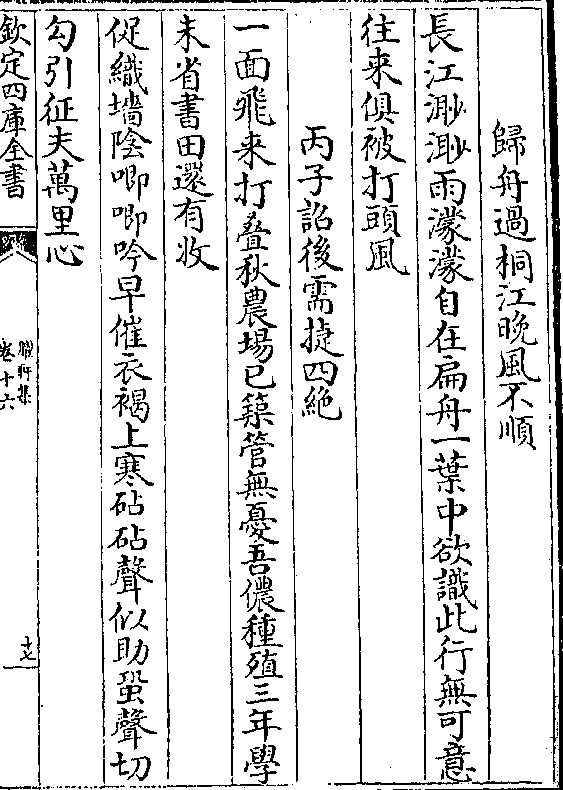 歸舟過桐江晚風不順
長江渺渺雨濛濛自在扁舟一葉中欲識此行無可意
往来俱被打頭風
丙子詔後需捷四絶
一面飛来打叠秋農場已築管無憂吾儂種殖三年學
未省書田還有收
促織墻隂唧唧吟早催衣褐上寒砧砧聲似助蛩聲切
勾引征夫萬里心
欽定四庫全書
臞軒集
卷十六
十七